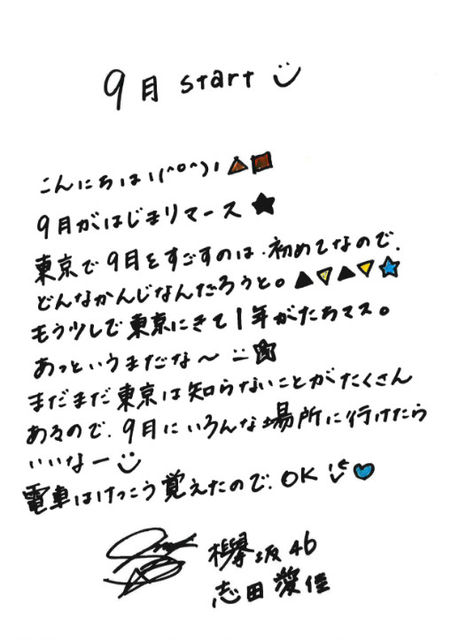 9月 start
こんにちは！(^o^)！
9月がはじまりマース★
東京で9月をすごすのは、初めてなので、
どんなかんじなんだろうと。▲▽▲▽☆
もう少しで東京にきて1年がたちマス。
あっというまだな〜
まだまだ東京は知らないことがたくさん
あるので、9月にいろんな場所に行けたら
いいなー
電車はけっこう覚えたので、OK
欅坂46
志田愛佳